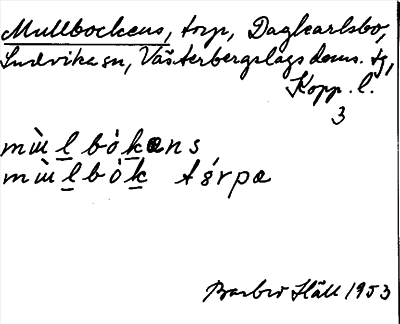 Mullbockens, torp, Dagkarlsbo,
Ludvika sn, Västerbergslags doms. tg,
Kopp. l.
3
mùl bókans
mùl bók tórpa
Barbro Häll 1953